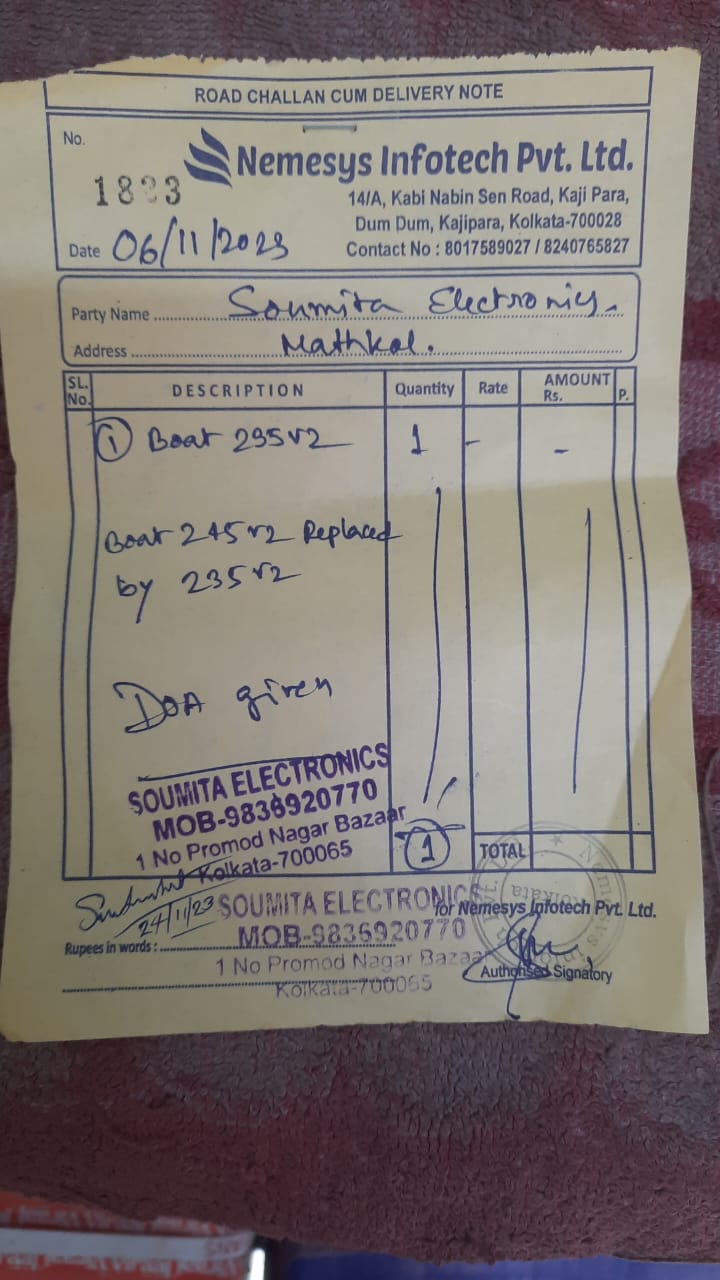 ROAD CHALLAN CUM DELIVERY NOTE
No.
1833
Nemesys Infotech Pvt. Ltd.
14/A, Kabi Nabin Sen Road, Kaji Para,
Dum Dum, Kajipara, Kolkata-700028
Contact No : 8017589027 / 8240765827
Date 06/11/2023
Party Name Soumita Electronics.
Address Mathkal.
SL. No. DESCRIPTION Quantity Rate AMOUNT Rs. P.
① Boat 235v2 1 - -
Boat 245v2 Replaced
by 235v2
DOA given
SOUMITA ELECTRONICS
MOB-9836920770
1 No Promod Nagar Bazaar
Kolkata-700065
1 TOTAL
24/11/23
SOUMITA ELECTRONICS
MOB-9836920770
1 No Promod Nagar Bazaar
Kolkata-700065
for Nemesys Infotech Pvt. Ltd.
Rupees in words :
Authorised Signatory